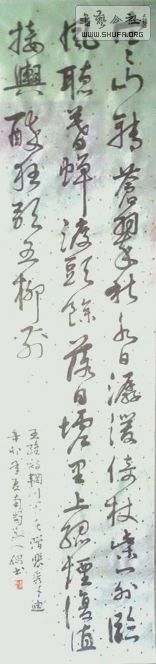 寒山转苍翠秋水日潺湲倚杖柴门外临
风听暮蝉渡头余落日墟里上孤烟复值
接舆醉狂歌五柳前
王维诗辋川闲居赠裴秀才迪
WWW.SHUFA.ORG